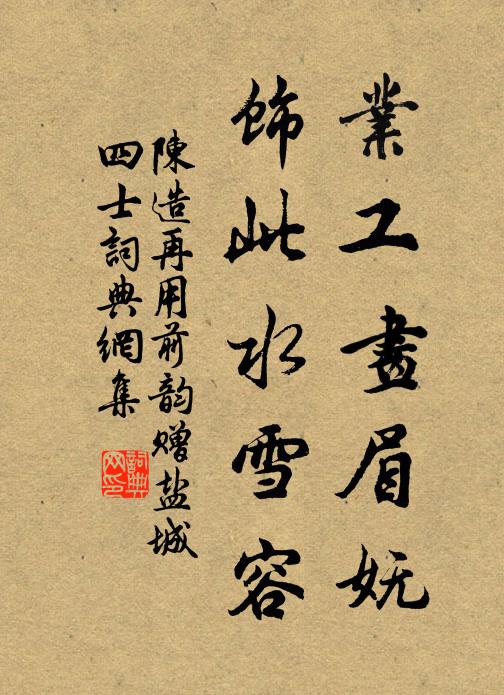 業工畫眉妩
飾此水雪容
陳造再用前韵贈盐城
四士詞典網集
詞典网印